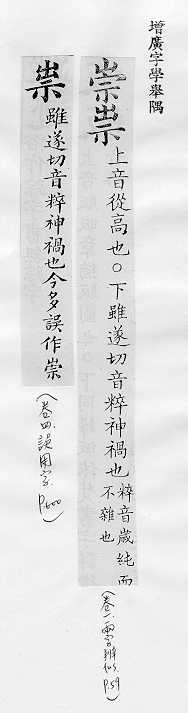 增廣字學舉隅
崇祟上音從高也○下雖遂切音粹神禍也粹音歲純而
不雜也
(卷一.兩字辨似. P.59)
祟雖遂切音粹神禍也今多誤作崇
(卷四.誤用字. P.600)